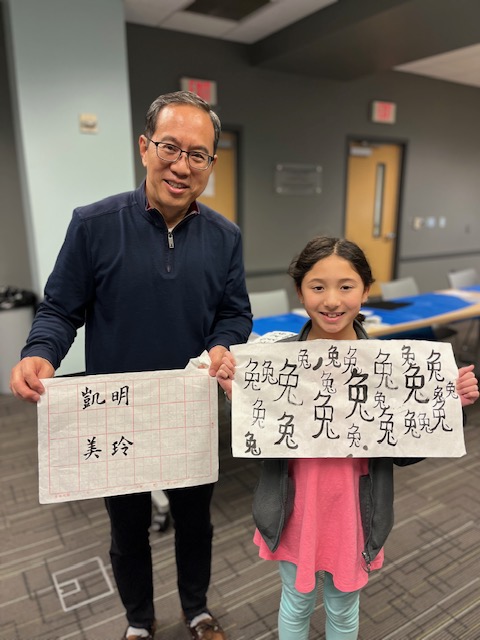 EXIT
EXIT
凱明
美玲
兔兔兔兔兔兔兔兔兔兔兔兔
兔兔兔兔兔
兔兔兔兔兔兔兔